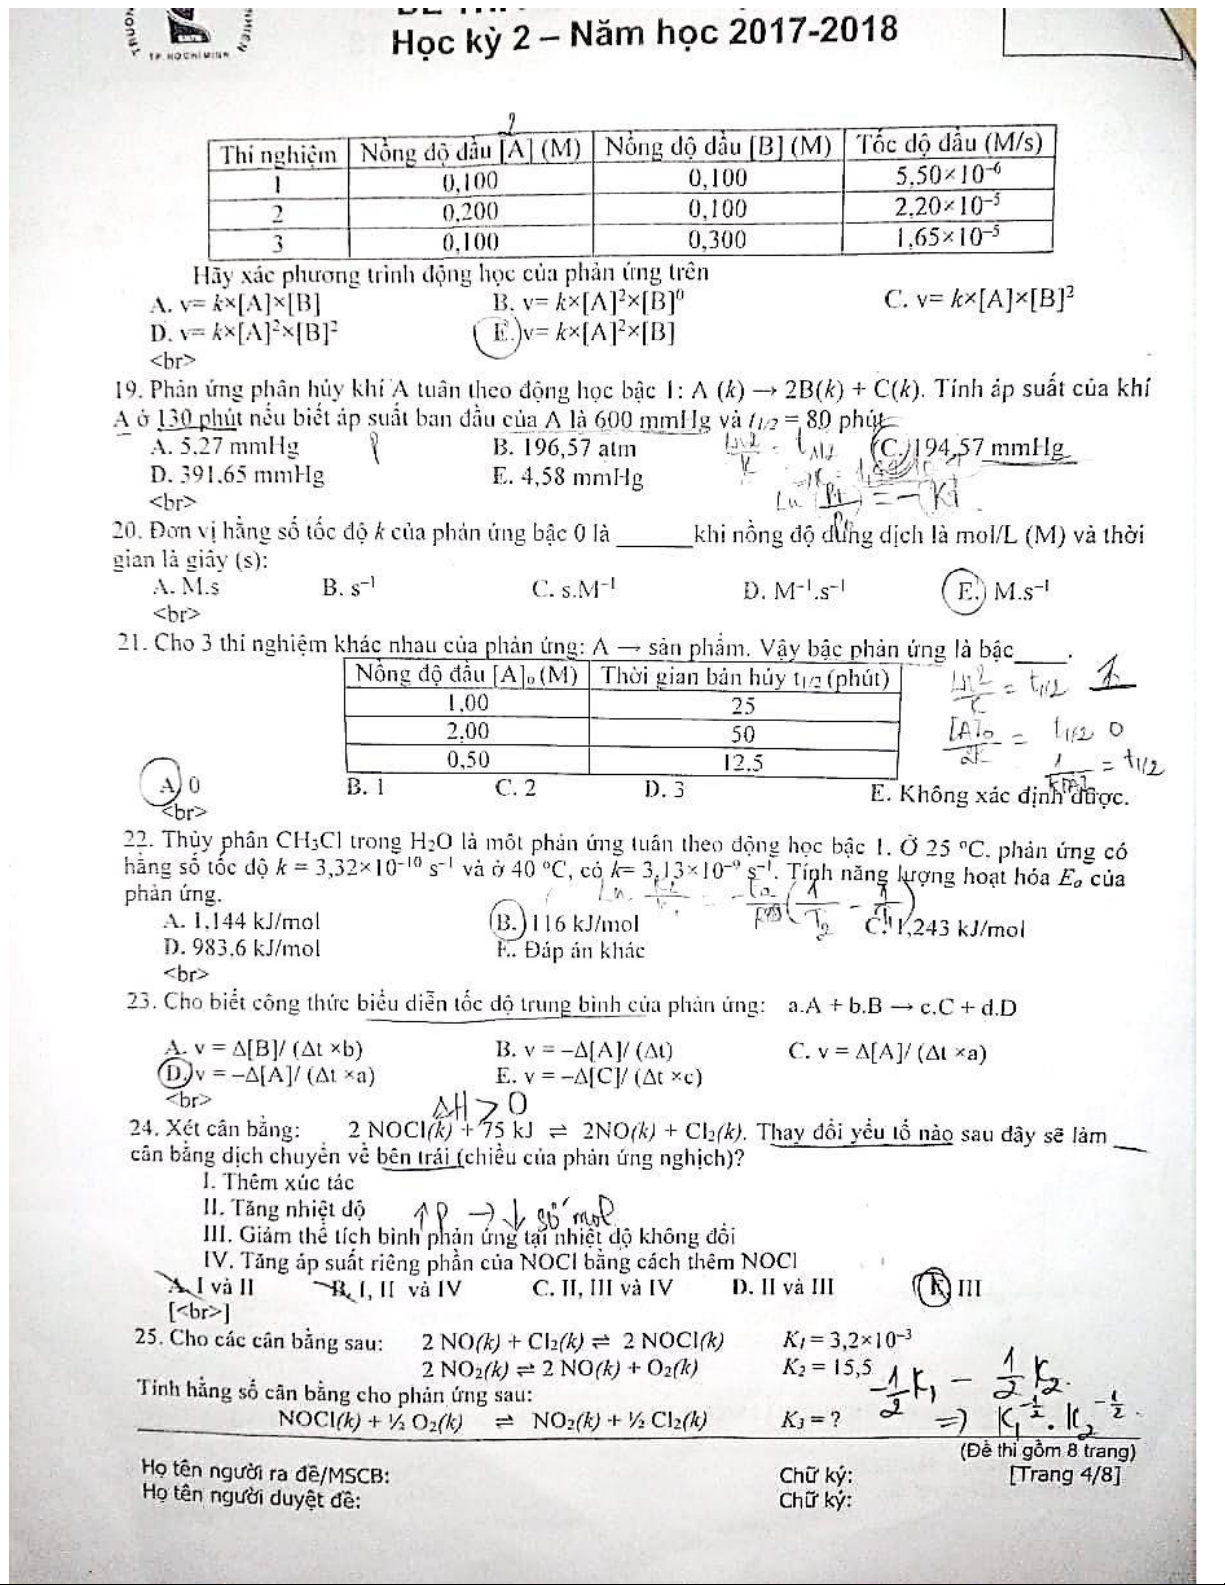 TP. HO CHI MINH
Học kỳ 2 – Năm học 2017-2018
2
Thí nghiệm | Nồng độ đầu [A] (M) | Nồng độ đầu [B] (M) | Tốc độ đầu (M/s)
1 | 0,100 | 0,100 | 5,50×10⁻⁶
2 | 0,200 | 0,100 | 2,20×10⁻⁵
3 | 0,100 | 0,300 | 1,65×10⁻⁵
Hãy xác phương trình động học của phản ứng trên
A. v= k×[A]×[B] B. v= k×[A]²×[B]⁰ C. v= k×[A]×[B]²
D. v= k×[A]²×[B]² E. v= k×[A]²×[B]
<br>
19. Phản ứng phân hủy khí A tuân theo động học bậc 1: A (k) → 2B(k) + C(k). Tính áp suất của khí
A ở 130 phút nếu biết áp suất ban đầu của A là 600 mmHg và t1/2 = 80 phút
A. 5,27 mmHg B. 196,57 atm C. 194,57 mmHg
D. 391,65 mmHg E. 4,58 mmHg
<br>
20. Đơn vị hằng số tốc độ k của phản ứng bậc 0 là ______ khi nồng độ dung dịch là mol/L (M) và thời
gian là giây (s):
A. M.s B. s⁻¹ C. s.M⁻¹ D. M⁻¹.s⁻¹ E. M.s⁻¹
<br>
21. Cho 3 thí nghiệm khác nhau của phản ứng: A → sản phẩm. Vậy bậc phản ứng là bậc____.
Nồng độ đầu [A]₀ (M) | Thời gian bán hủy t1/2 (phút)
1,00 | 25
2,00 | 50
0,50 | 12,5
Ln2/K = t1/2 1
[A]o/2K = t1/2 0
1/K[A] = t1/2
A. 0 B. 1 C. 2 D. 3 E. Không xác định được.
<br>
22. Thủy phân CH₃Cl trong H₂O là một phản ứng tuân theo động học bậc 1. Ở 25 °C, phản ứng có
hằng số tốc độ k = 3,32×10⁻¹⁰ s⁻¹ và ở 40 °C, có k= 3,13×10⁻⁹ s⁻¹. Tính năng lượng hoạt hóa Eₐ của
phản ứng.
A. 1,144 kJ/mol B. 116 kJ/mol C. 1,243 kJ/mol
D. 983,6 kJ/mol E. Đáp án khác
<br>
23. Cho biết công thức biểu diễn tốc độ trung bình của phản ứng: a.A + b.B → c.C + d.D
A. v = Δ[B]/ (Δt ×b) B. v = −Δ[A]/ (Δt) C. v = Δ[A]/ (Δt ×a)
D. v = −Δ[A]/ (Δt ×a) E. v = −Δ[C]/ (Δt ×c)
<br>
ΔH > 0
24. Xét cân bằng: 2 NOCl(k) + 75 kJ ⇌ 2NO(k) + Cl₂(k). Thay đổi yếu tố nào sau đây sẽ làm
cân bằng dịch chuyển về bên trái (chiều của phản ứng nghịch)?
I. Thêm xúc tác
II. Tăng nhiệt độ
↑P → ↓ số mol
III. Giảm thể tích bình phản ứng tại nhiệt độ không đổi
IV. Tăng áp suất riêng phần của NOCl bằng cách thêm NOCl
A. I và II B. I, II và IV C. II, III và IV D. II và III E. III
[<br>]
25. Cho các cân bằng sau: 2 NO(k) + Cl₂(k) ⇌ 2 NOCl(k) K₁ = 3,2×10⁻³
2 NO₂(k) ⇌ 2 NO(k) + O₂(k) K₂ = 15,5
-1/2 K₁ - 1/2 K₂.
Tính hằng số cân bằng cho phản ứng sau:
NOCl(k) + ½ O₂(k) ⇌ NO₂(k) + ½ Cl₂(k) K₃ = ?
=) K₁^-1/2 . K₂^-1/2.
(Đề thi gồm 8 trang)
Họ tên người ra đề/MSCB: Chữ ký: [Trang 4/8]
Họ tên người duyệt đề: Chữ ký: